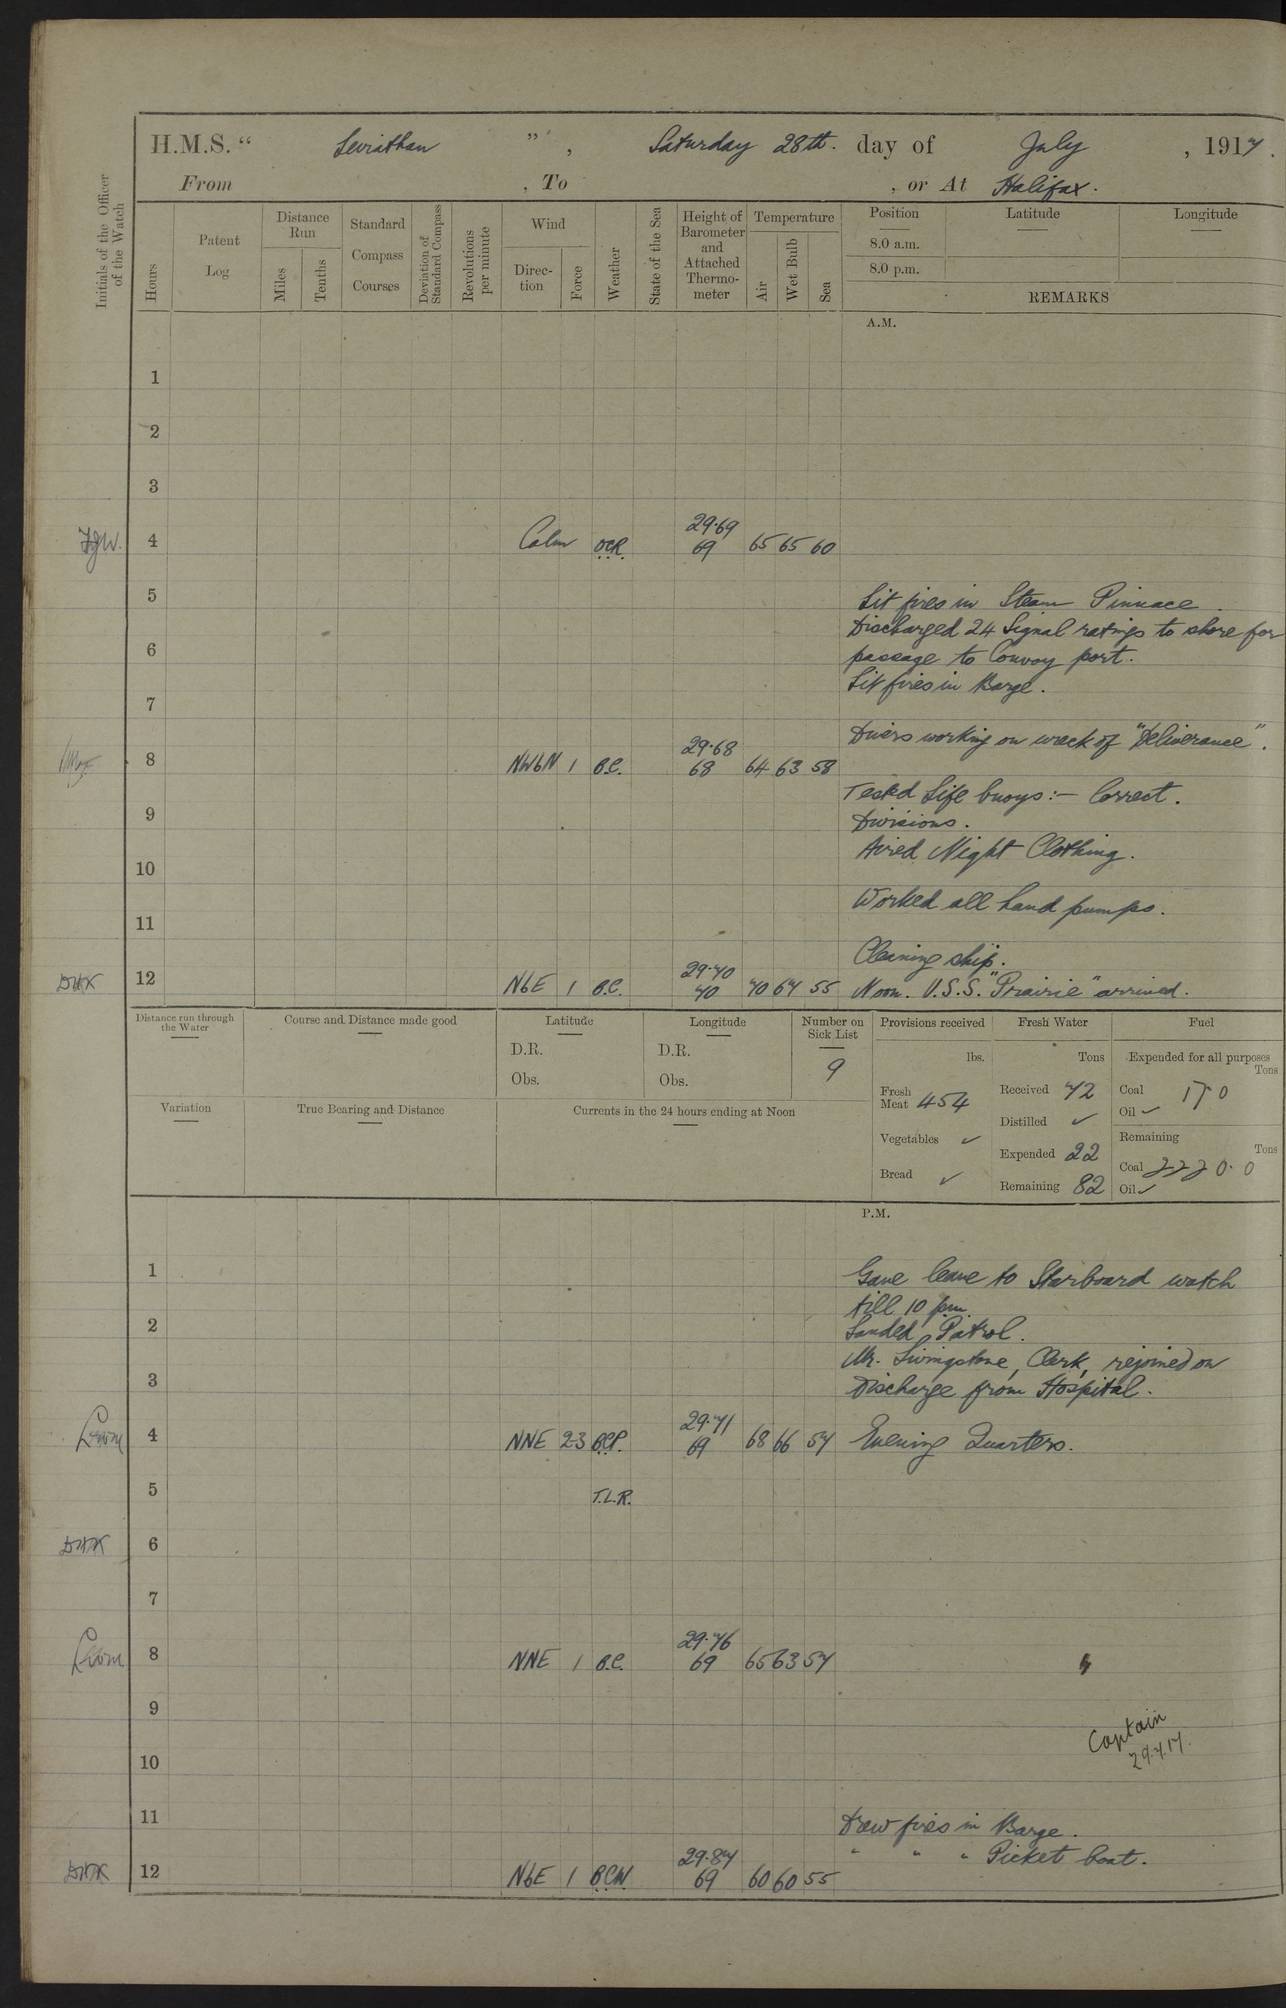 H.M.S. “ Leviathan ” , Saturday 28th. day of July , 1917.
From , To , or At Halifax.
Initials of the Officer of the Watch
Hours
Patent Log
Distance Run
Miles
Tenths
Standard Compass Courses
Deviation of Standard Compass
Revolutions per minute
Wind
Direc-tion
Force
Weather
State of the Sea
Height of Barometer and Attached Thermo-meter
Temperature
Air
Wet Bulb
Sea
Position
8.0 a.m.
8.0 p.m.
Latitude
Longitude
REMARKS
A.M.
1
2
3
29.69
4 Calm O.C.R. 69 65 65 60
5 Lit fires in Steam Pinnace.
Discharged 24 Signal ratings to shore for
6 passage to Convoy port.
Lit fires in Barge.
7
Divers working on wreck of "Deliverance".
29.68
8 NWbN 1 B.C. 68 64 63 58
Tested Life buoys:- Correct.
9 Divisions.
Aired Night Clothing.
10
Worked all hand pumps.
11
Cleaning ship.
29.70
DHK 12 NbE 1 B.C. 70 70 67 55 Noon. U.S.S. "Prairie" arrived.
Distance run through the Water
Course and Distance made good
Latitude
D.R.
Obs.
Longitude
D.R.
Obs.
Number on Sick List
9
Provisions received
lbs.
Fresh Meat 454
Vegetables ✓
Bread ✓
Fresh Water
Tons
Received 72
Distilled ✓
Expended 22
Remaining 82
Fuel
Expended for all purposes
Tons
Coal
Oil ✓
Remaining
Tons
Coal
Oil ✓
Variation
True Bearing and Distance
Currents in the 24 hours ending at Noon
P.M.
1 Gave leave to Starboard watch
till 10 pm
2 Landed Patrol.
Mr. Livingstone, Clerk, rejoined on
3 Discharge from Hospital.
29.71
4 NNE 2-3 B.C.P. 69 68 66 57 Evening Quarters.
5 T.L.R.
DHK 6
7
29.76
8 NNE 1 B.C. 69 65 63 57
9
Captain
29.7.17.
10
11 Drew fires in Barge.
" " " Picket boat.
29.87
DHK 12 NbE 1 B.C.W. 69 60 60 55